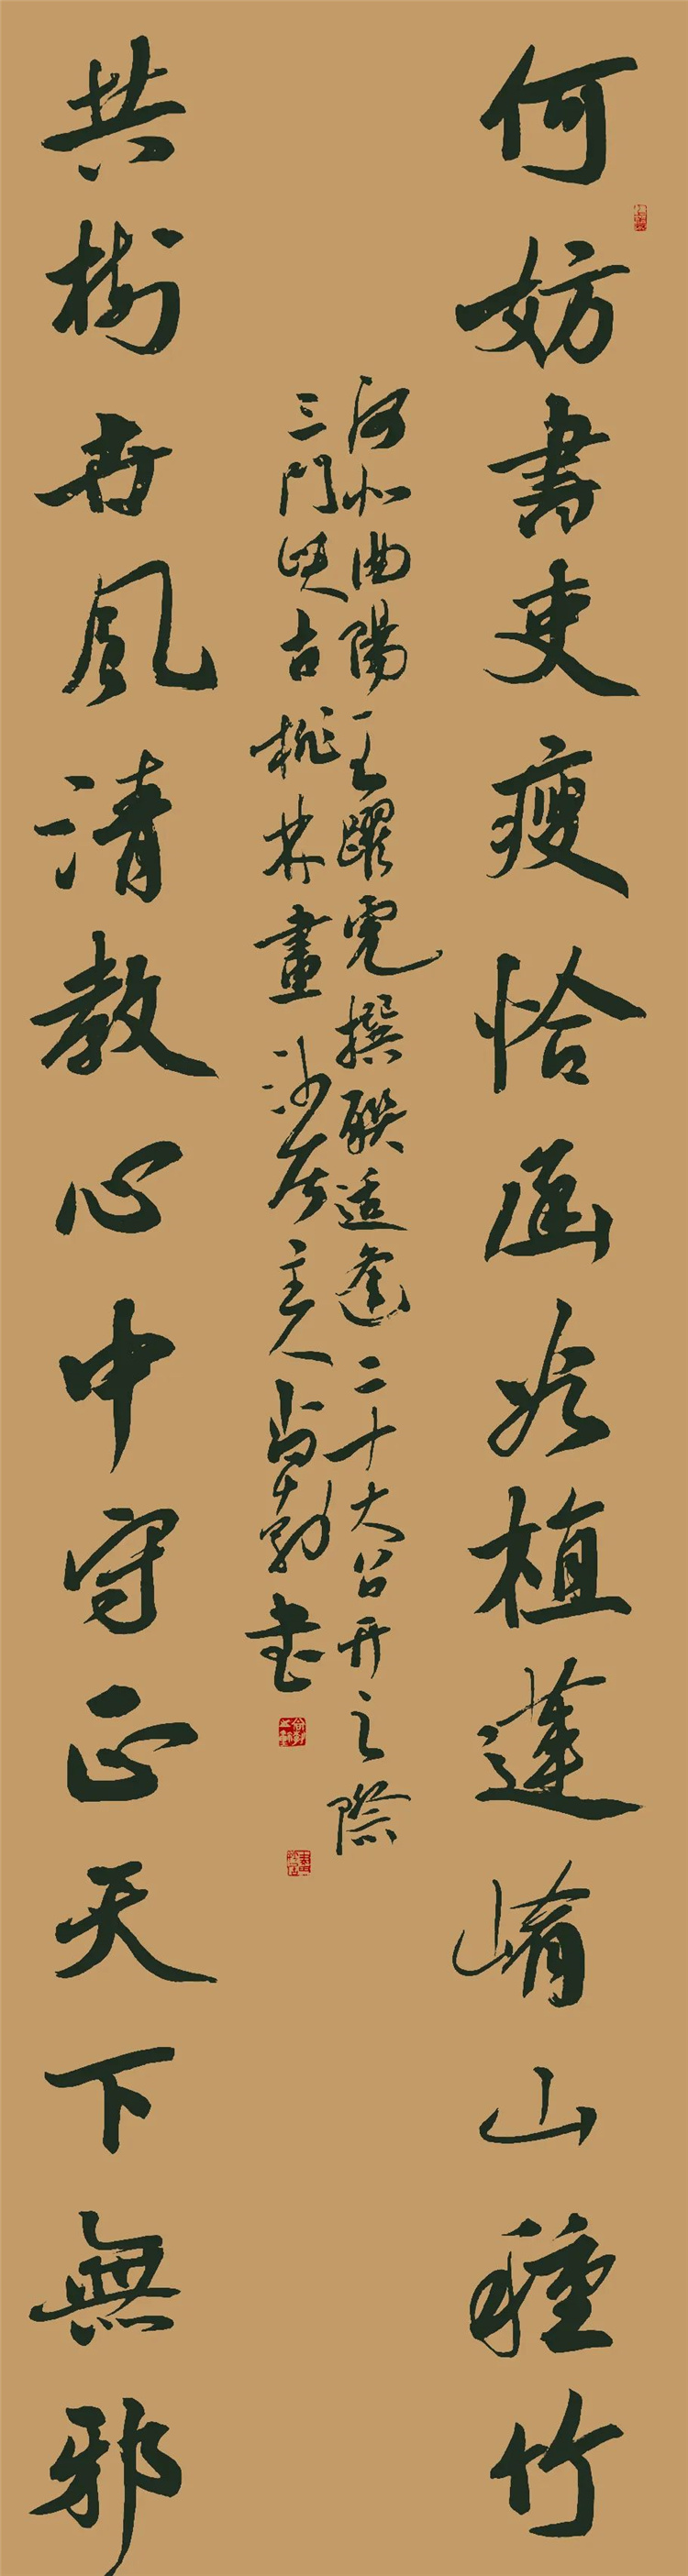 何妨書吏瘦恰函谷植蓮崤山種竹
河北曲陽王躍虎撰聯适逢二十大召开之際
三門峽古桃林畫沙居主人尚勃书
共樹世風清教心中守正天下無邪